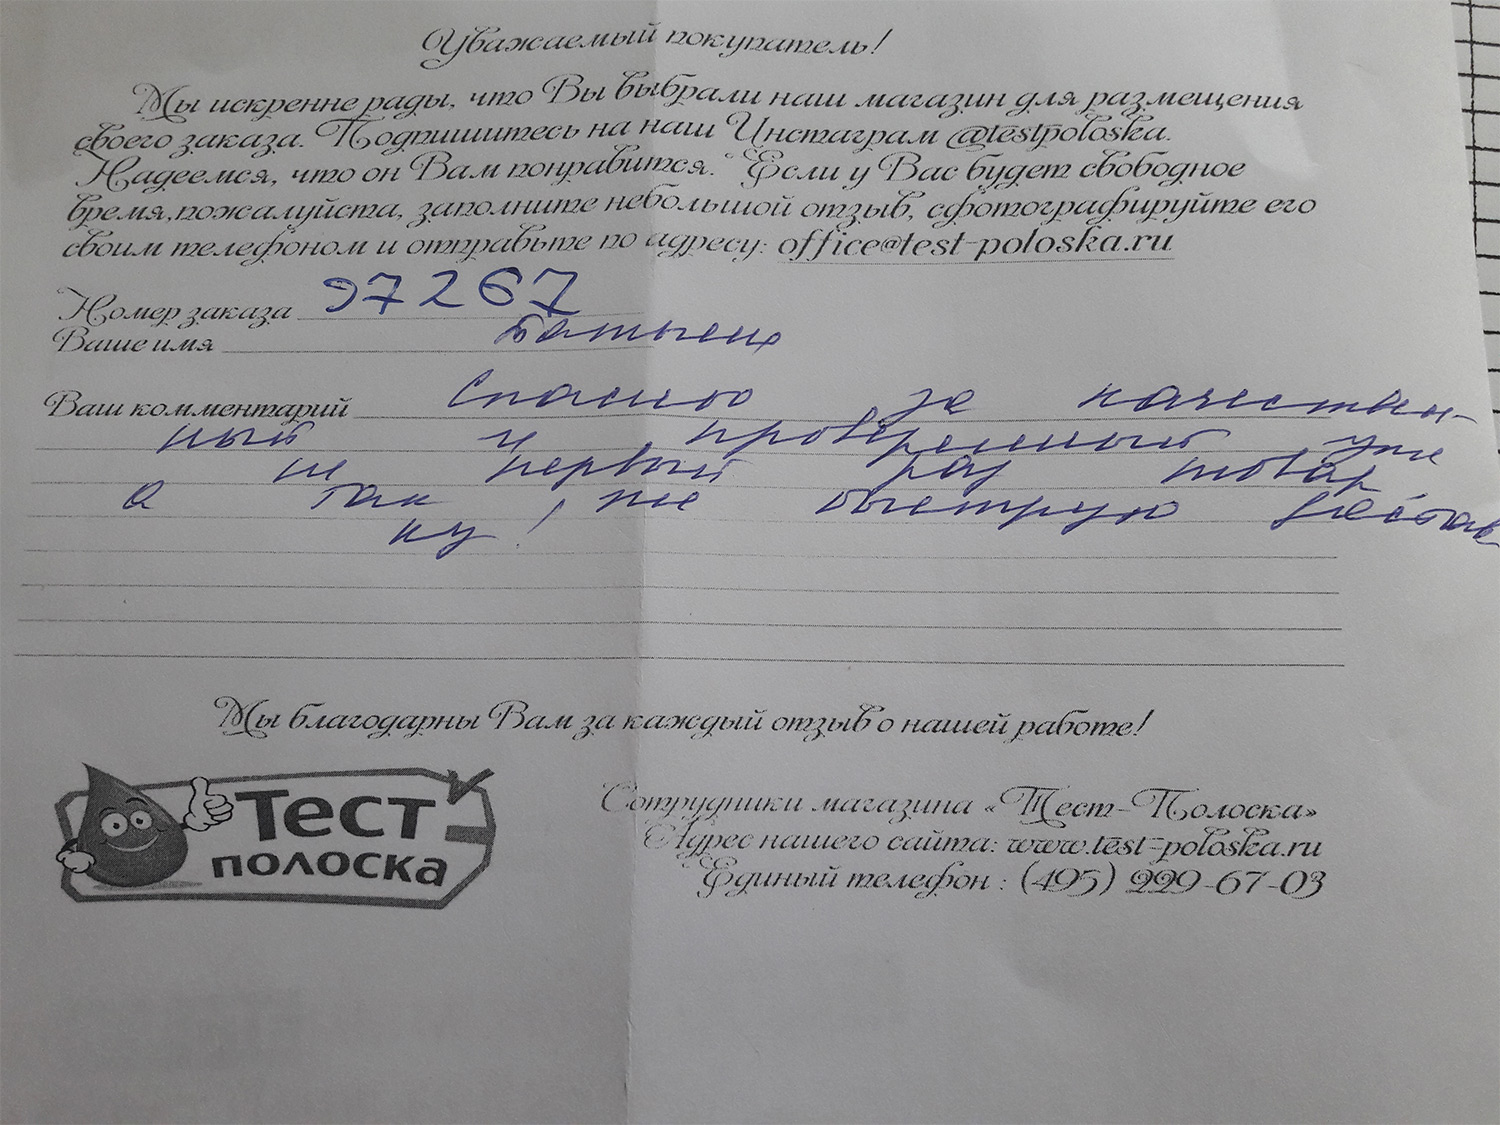 Уважаемый покупатель!
Мы искренне рады, что Вы выбрали наш магазин для размещения
своего заказа. Подпишитесь на наш Инстаграм @testpoloska.
Надеемся, что он Вам понравится. Если у Вас будет свободное
время, пожалуйста, заполните небольшой отзыв, сфотографируйте его
своим телефоном и отправьте по адресу: office@test-poloska.ru
Номер заказа 97267
Ваше имя
Ваш комментарий Спасибо за качествен-
ный и проверенный уже
не первый раз товар
а так же быструю достав-
ку!
Мы благодарны Вам за каждый отзыв о нашей работе!
Тест
полоска
Сотрудники магазина «Тест-Полоска»
Адрес нашего сайта: www.test-poloska.ru
Единый телефон : (495) 229-67-03